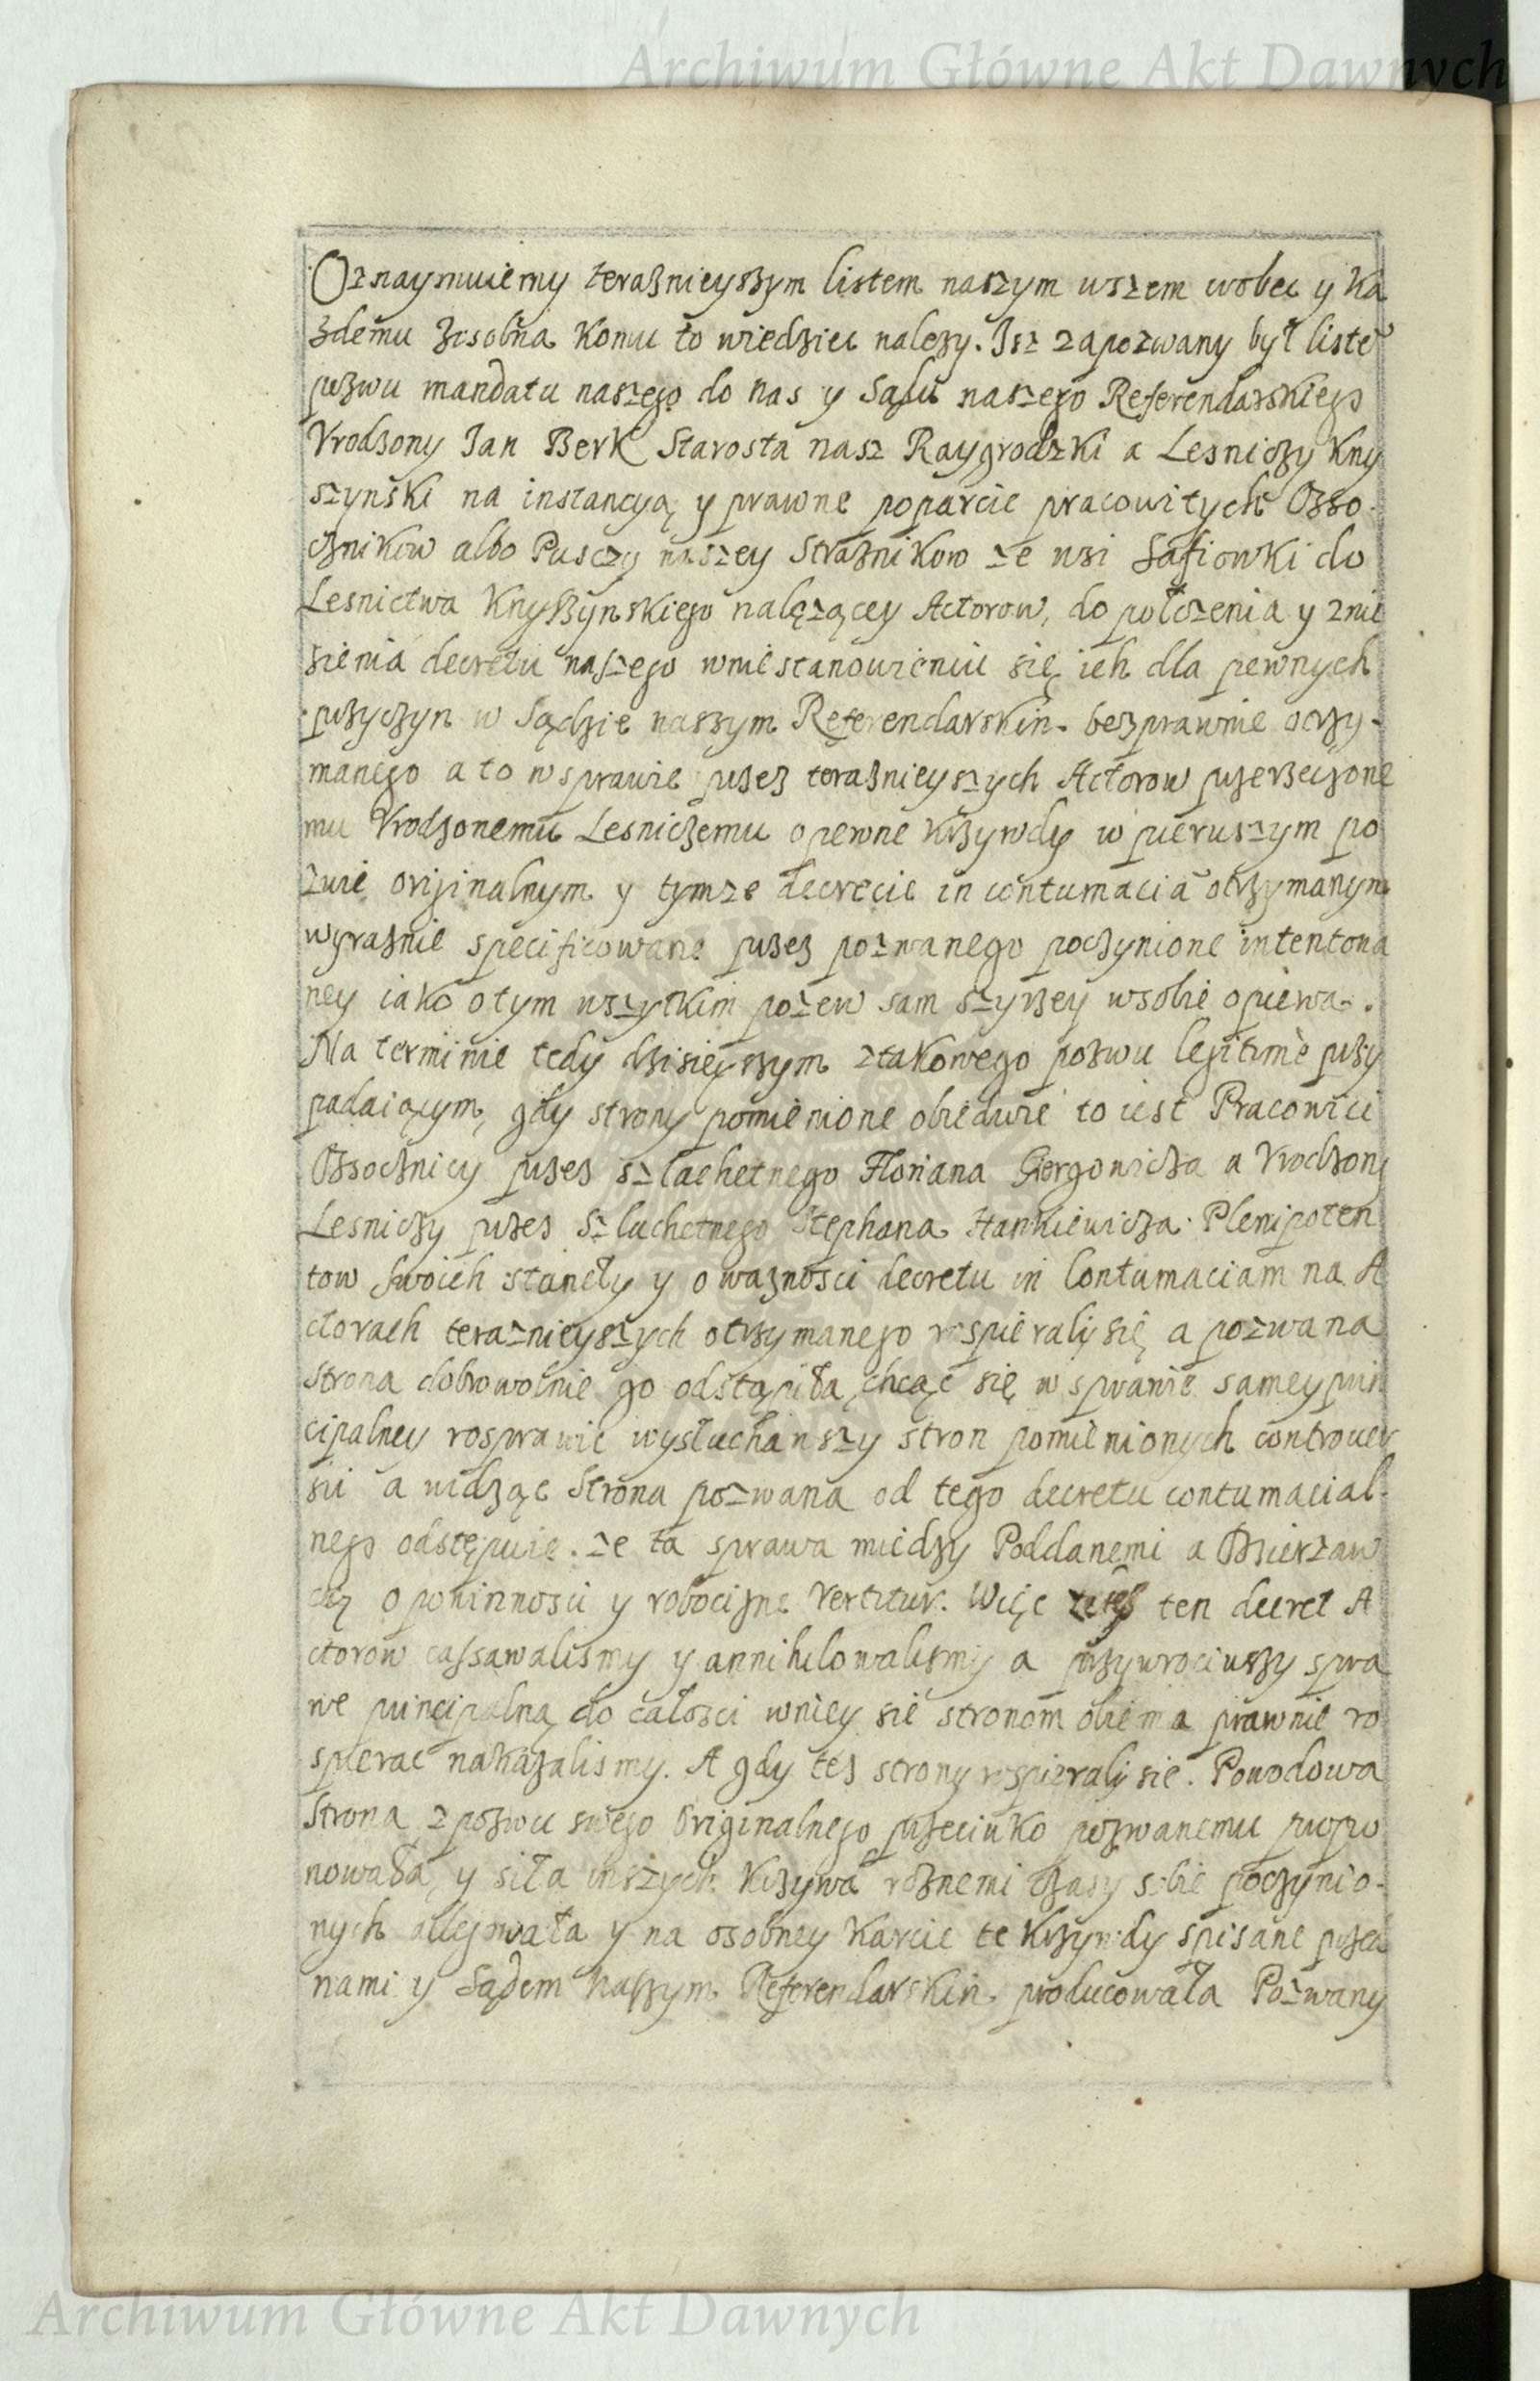 Archiwum Główne Akt Dawnych
Oznaymuiemy teraznieyszym listem naszym wszem wobec y ka
zdemu zosobna komu to wiedziec nalezy. Isz zapozwany był liste
pozwu mandatu naszego do nas y Sądu naszego Referendarskiego
Vrodzony Jan Berk Starosta nasz Raygrodzki a Lesniczy Kny
szynski na instancyą y prawne poparcie pracowitych Oszo
cznikow albo Pusczy naszey Straznikow ze wsi do
Lesnictwa Knyszynskiego nalęzącey Actorow, do połozenia y znie
sienia decretu naszego wniestanowieniu się ich dla pewnych
przyczyn w Sądzie naszym Referendarskim bezprawnie otrzy-
manego a to wsprawie przez teraznieyszych Actorow przerzeczone
mu Vrodzonemu Lesniczemu o pewne krzywdy w pierwszym po
zwie originalnym y tymze decrecie in contumacia otrzymanym
wyraznie specificowane przez pozwanego poczynione intentowa
ney iako o tym wszytkim pozew sam szyrzey wsobie opiewa.
Na terminie tedy dzisieyszym ztakowego pozwu legitimè przy
padaiącym, gdy strony pomienione obiedwie to iest Pracowici
Oszocznicy przez szlachetnego Floriana Giergowicza a Vrodzony
Lesniczy przez Szlachetnego Stephana Hankiewicza Plenipoten
tow swoich stanęły y o waznosci decretu in Contumaciam na A
ctorach teraznieyszych otrzymanego rospieraly się a pozwana
strona dobrowolnie go odstąpiła chcąc się w sprawie samey prin
cipalney rosprawic wysłuchawszy stron pomienionych controuer
sii a widząc Strona pozwana od tego decretu contumacial-
nego odstępuie. ze ta sprawa miedzy Poddanemi a Dzierzaw
cą o powinnosci y robocizne Vertitur. Więc ten decret A
ctorow cassawalismy y annihilowalismy a przywrociwszy spra
we principalną do całosci wniey sie stronom obiema prawnie ro
spierac nakazalismy. A gdy tes strony rospieraly sie. Powodowa
Strona z pozwu swego Originalnego przeciwko pozwanemu propo
nowała, y siła inszych krzywd roznemi czasy sobie poczynio-
nych allegowała y na osobney karcie te krzywdy spisane przed
nami y Sądem naszym Referendarskim producowała Pozwany
Archiwum Główne Akt Dawnych